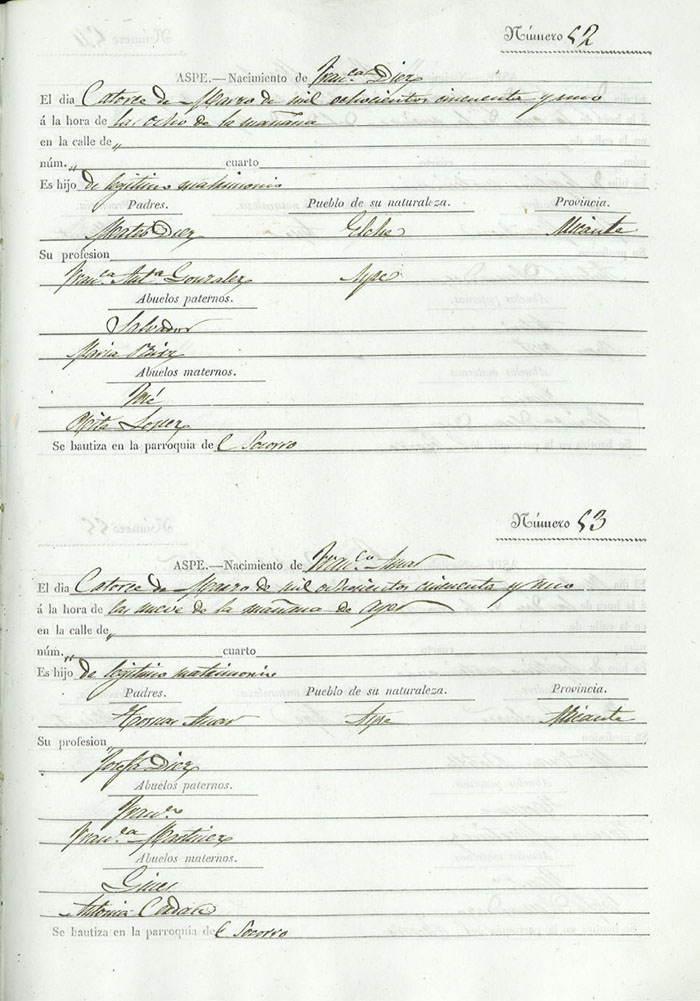 Número 52
ASPE.—Nacimiento de Fran.ca Diez
El dia Catorce de Marzo de mil ochocientos cincuenta y uno
á la hora de las ocho de la mañana
en la calle de „
núm. „ cuarto
Es hijo de legitimo matrimonio
Padres. Pueblo de su naturaleza. Provincia.
Mateo Diez Elche Alicante
Su profesion
Fran.ca Ant.a Gonzalez Aspe
Abuelos paternos.
Salvador
Maria
Abuelos maternos.
José
Rita Lopez
Se bautiza en la parroquia de El Socorro
Número 53
ASPE.—Nacimiento de Fran.co Amar
El dia Catorce de Marzo de mil ochocientos cincuenta y uno
á la hora de las nueve de la mañana de ayer
en la calle de „
núm. „ cuarto
Es hijo de legitimo matrimonio
Padres. Pueblo de su naturaleza. Provincia.
Amar Aspe Alicante
Su profesion
Josefa Diez
Abuelos paternos.
Fran.co
Fran.ca Martinez
Abuelos maternos.
Gines
Antonia
Se bautiza en la parroquia de El Socorro